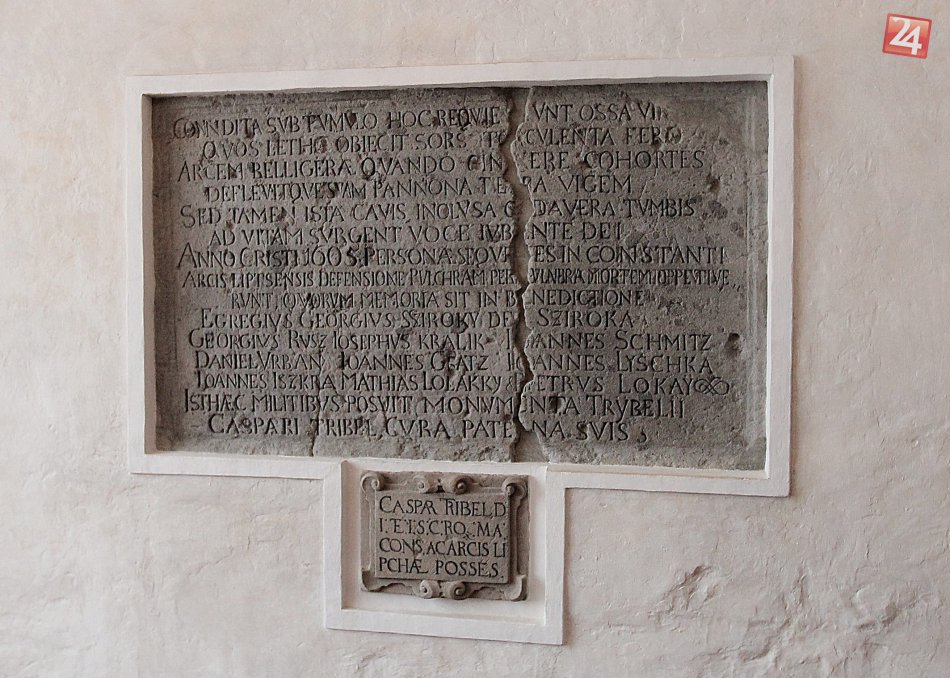 24
CONNDITA SVB TVMVLO HOC REQVIE UNT OSSA VIR
QVOS LETHO OBIECIT SORS T CVLENTA FERO
ARCEM BELLIGERÆ QVANDO CIN ERE COHORTES
DEFLEVIT QVESTVAM PANNONA TE RA VICEM
SED TAMEN ISTA CAVIS INCLVSA C DAVERA TVMBIS
AD VITAM SVRGENT VOCE IVB NTE DEI
ANNO CRISTI 1605 PERSONÆ SEQVE ES IN CONSTANTI
ARCIS LIPTSENSIS DEFENSIONE PVLCHRAM PER VVLNERA MORTEM OPPETIVE
RVNT, QVORVM MEMORIA SIT IN B NEDICTIONE
EGREGIVS GEORGIVS SZIROKY DE SZIROKA
GEORGIVS RVSZ IOSEPHVS KRALIK ANNES SCHMITZ
DANIEL VRBAN IOANNES GLATZ IOANNES LYSCHKA
IOANNES ISZKRA MATHIAS LOLAKKY PETRVS LOKAY
ISTHÆC MILITIBVS POSVIT MONVM NTA TRYBELII
CASPARI TRIBEL, CVRA PATE NA SVIS
CASPAR TRIBEL D
I. E I S C R O MA
CONS, AC ARCIS LI
PCHÆ POSSES.